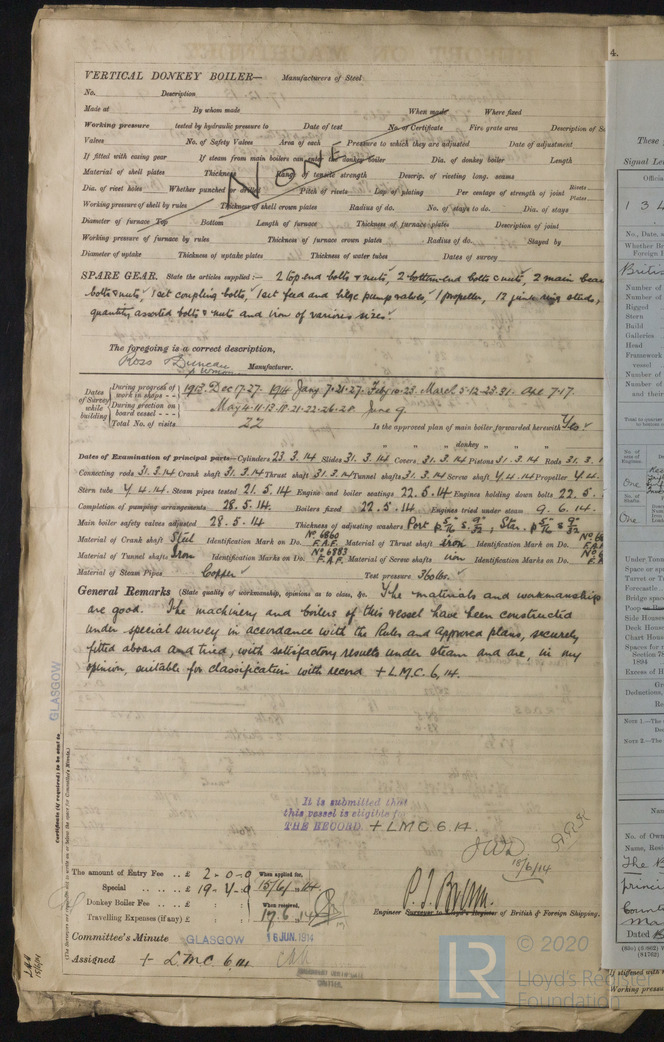 VERTICAL DONKEY BOILER— Manufacturers of Steel
No. Description
Made at By whom made When made Where fixed
Working pressure tested by hydraulic pressure to Date of test No. of Certificate Fire grate area Description of
Valves No. of Safety Valves Area of each Pressure to which they are adjusted Date of adjustment
If fitted with easing gear If steam from main boilers can enter the donkey boiler Dia. of donkey boiler Length
Material of shell plates Thickness Range of tensile strength Descrip. of riveting long. seams
NONE
Dia. of rivet holes Whether punched or drilled Pitch of rivets Lap of plating Per centage of strength of joint Rivets Plates
Working pressure of shell by rules Thickness of shell crown plates Radius of do. No. of stays to do. Dia. of stays
Diameter of furnace Top Bottom Length of furnace Thickness of furnace plates Description of joint
Working pressure of furnace by rules Thickness of furnace crown plates Radius of do. Stayed by
Diameter of uptake Thickness of uptake plates Thickness of water tubes Dates of survey
SPARE GEAR. State the articles supplied:— 2 top end bolts & nuts, 2 bottom end bolts & nuts, 2 main bear
bolts & nuts, 1 set coupling bolts, 1 set feed and bilge pump valves, 1 propeller, 12 junk ring studs,
quantity assorted bolts & nuts and iron of various sizes.
The foregoing is a correct description,
Ross & Duncan
Manufacturer.
Dates of Survey while building
During progress of work in shops - - 1913. Dec 17. 27. 1914 Jany 7. 21. 27. Feby 10. 23. March 5. 12. 23. 31. Apl 7. 17.
During erection on board vessel - - - May 4. 11. 13. 18. 21. 22. 26. 28. June 9.
Total No. of visits 22 Is the approved plan of main boiler forwarded herewith Yes
" " " donkey " " "
Dates of Examination of principal parts—Cylinders 23.3.14 Slides 31.3.14 Covers 31.3.14 Pistons 31.3.14 Rods 31.3.1
Connecting rods 31.3.14 Crank shaft 31.3.14 Thrust shaft 31.3.14 Tunnel shafts 31.3.14 Screw shaft 4.4.14 Propeller 4.4.
Stern tube 4.4.14. Steam pipes tested 21.5.14 Engine and boiler seatings 22.5.14 Engines holding down bolts 22.5.
Completion of pumping arrangements 28.5.14. Boilers fixed 22.5.14 Engines tried under steam 9.6.14.
Main boiler safety valves adjusted 28.5.14 Thickness of adjusting washers Port p 5/16 s 9/32 Star. p 5/16 s 9/32
Material of Crank shaft Steel Identification Mark on Do. No 6860 F.A.F. Material of Thrust shaft iron Identification Mark on Do.
Material of Tunnel shafts Iron Identification Marks on Do. No 6883 F.A.F. Material of Screw shafts iron Identification Marks on Do.
Material of Steam Pipes Copper Test pressure 360 lbs.
General Remarks (State quality of workmanship, opinions as to class, &c. The materials and workmanship
are good. The machinery and boilers of this vessel have been constructed
under special survey in accordance with the Rules and approved plans, securely
fitted aboard and tried, with satisfactory results under steam and are, in my
opinion, suitable for classification with record + L.M.C. 6,14.
GLASGOW
Certificate (if required) to be sent to
It is submitted that
this vessel is eligible for
THE RECORD + L.M.C. 6.14.
15/6/14
The amount of Entry Fee .. £ 2 - 0 - 0 When applied for,
Special .. .. .. £ 19 - 4 - 0 15/6/14
Donkey Boiler Fee .. .. £ : : When received,
Travelling Expenses (if any) £ : : 17.6.14
Engineer Surveyor to Lloyd's Register of British & Foreign Shipping.
Committee's Minute GLASGOW 16 JUN. 1914
Assigned + L.M.C. 6,14
4.
These
Signal Le
Offici
1 3 4
No., Date, a
Whether B
Foreign
Britis
Number of
Number of
Rigged
Stern
Build
Galleries
Head
Framework
vessel
Number of
Number of
and thei
One
One
Under Tonn
Space or sp
Turret or T
Forecastle
Bridge space
Poop
Side Houses
Deck House
Chart House
Spaces for
Section 78
1894
Excess of H
Gr
Deductions,
Re
NOTE 1.—The
NOTE 2.—The
Nam
No. of Own
Name, Resid
The B
princi
Count
Dated
(91762)
If stiffened with
Working pressu
LR © 2020
Lloyd's Register
Foundation